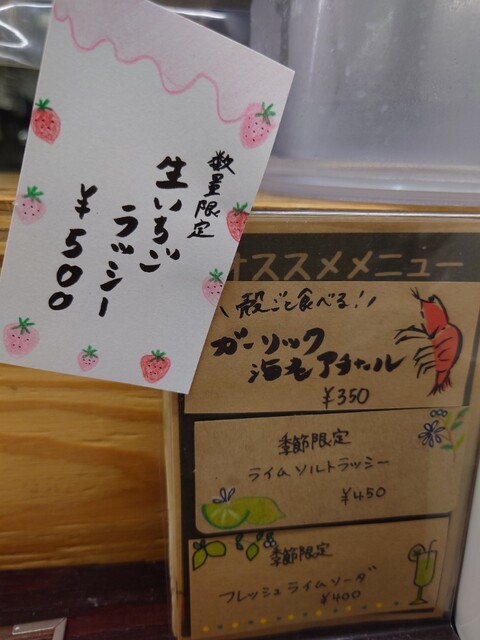 数量限定
生いちご
ラッシー
¥500
オススメメニュー
\殻ごと食べる!!/
ガーリック
海老アチャール
¥350
季節限定
ライムソルトラッシー
¥450
季節限定
フレッシュライムソーダ
¥400